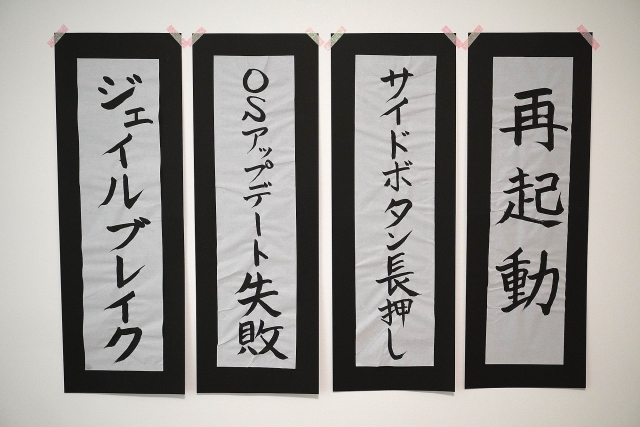 再起動
サイドボタン長押し
OSアップデート失敗
ジェイルブレイク